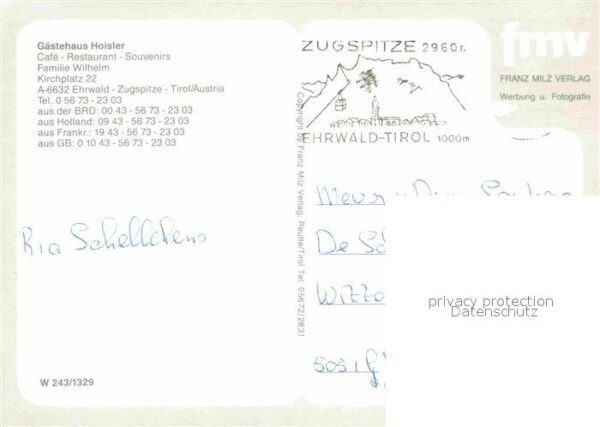 Gästehaus Hoisler
Café - Restaurant - Souvenirs
Familie Wilhelm
Kirchplatz 22
A-6632 Ehrwald - Zugspitze - Tirol/Austria
Tel. 0 56 73 - 23 03
aus der BRD: 00 43 - 56 73 - 23 03
aus Holland: 09 43 - 56 73 - 23 03
aus Frankr.: 19 43 - 56 73 - 23 03
aus GB: 0 10 43 - 56 73 - 23 03
Ria Schellekens
W 243/1329
Copyright by Franz Milz Verlag, Reutte/Tirol Tel. 05672/2831
ZUGSPITZE 2960m
EHRWALD-TIROL 1000m
fmv
FRANZ MILZ VERLAG
Werbung u. Fotografie
De
privacy protection
Datenschutz